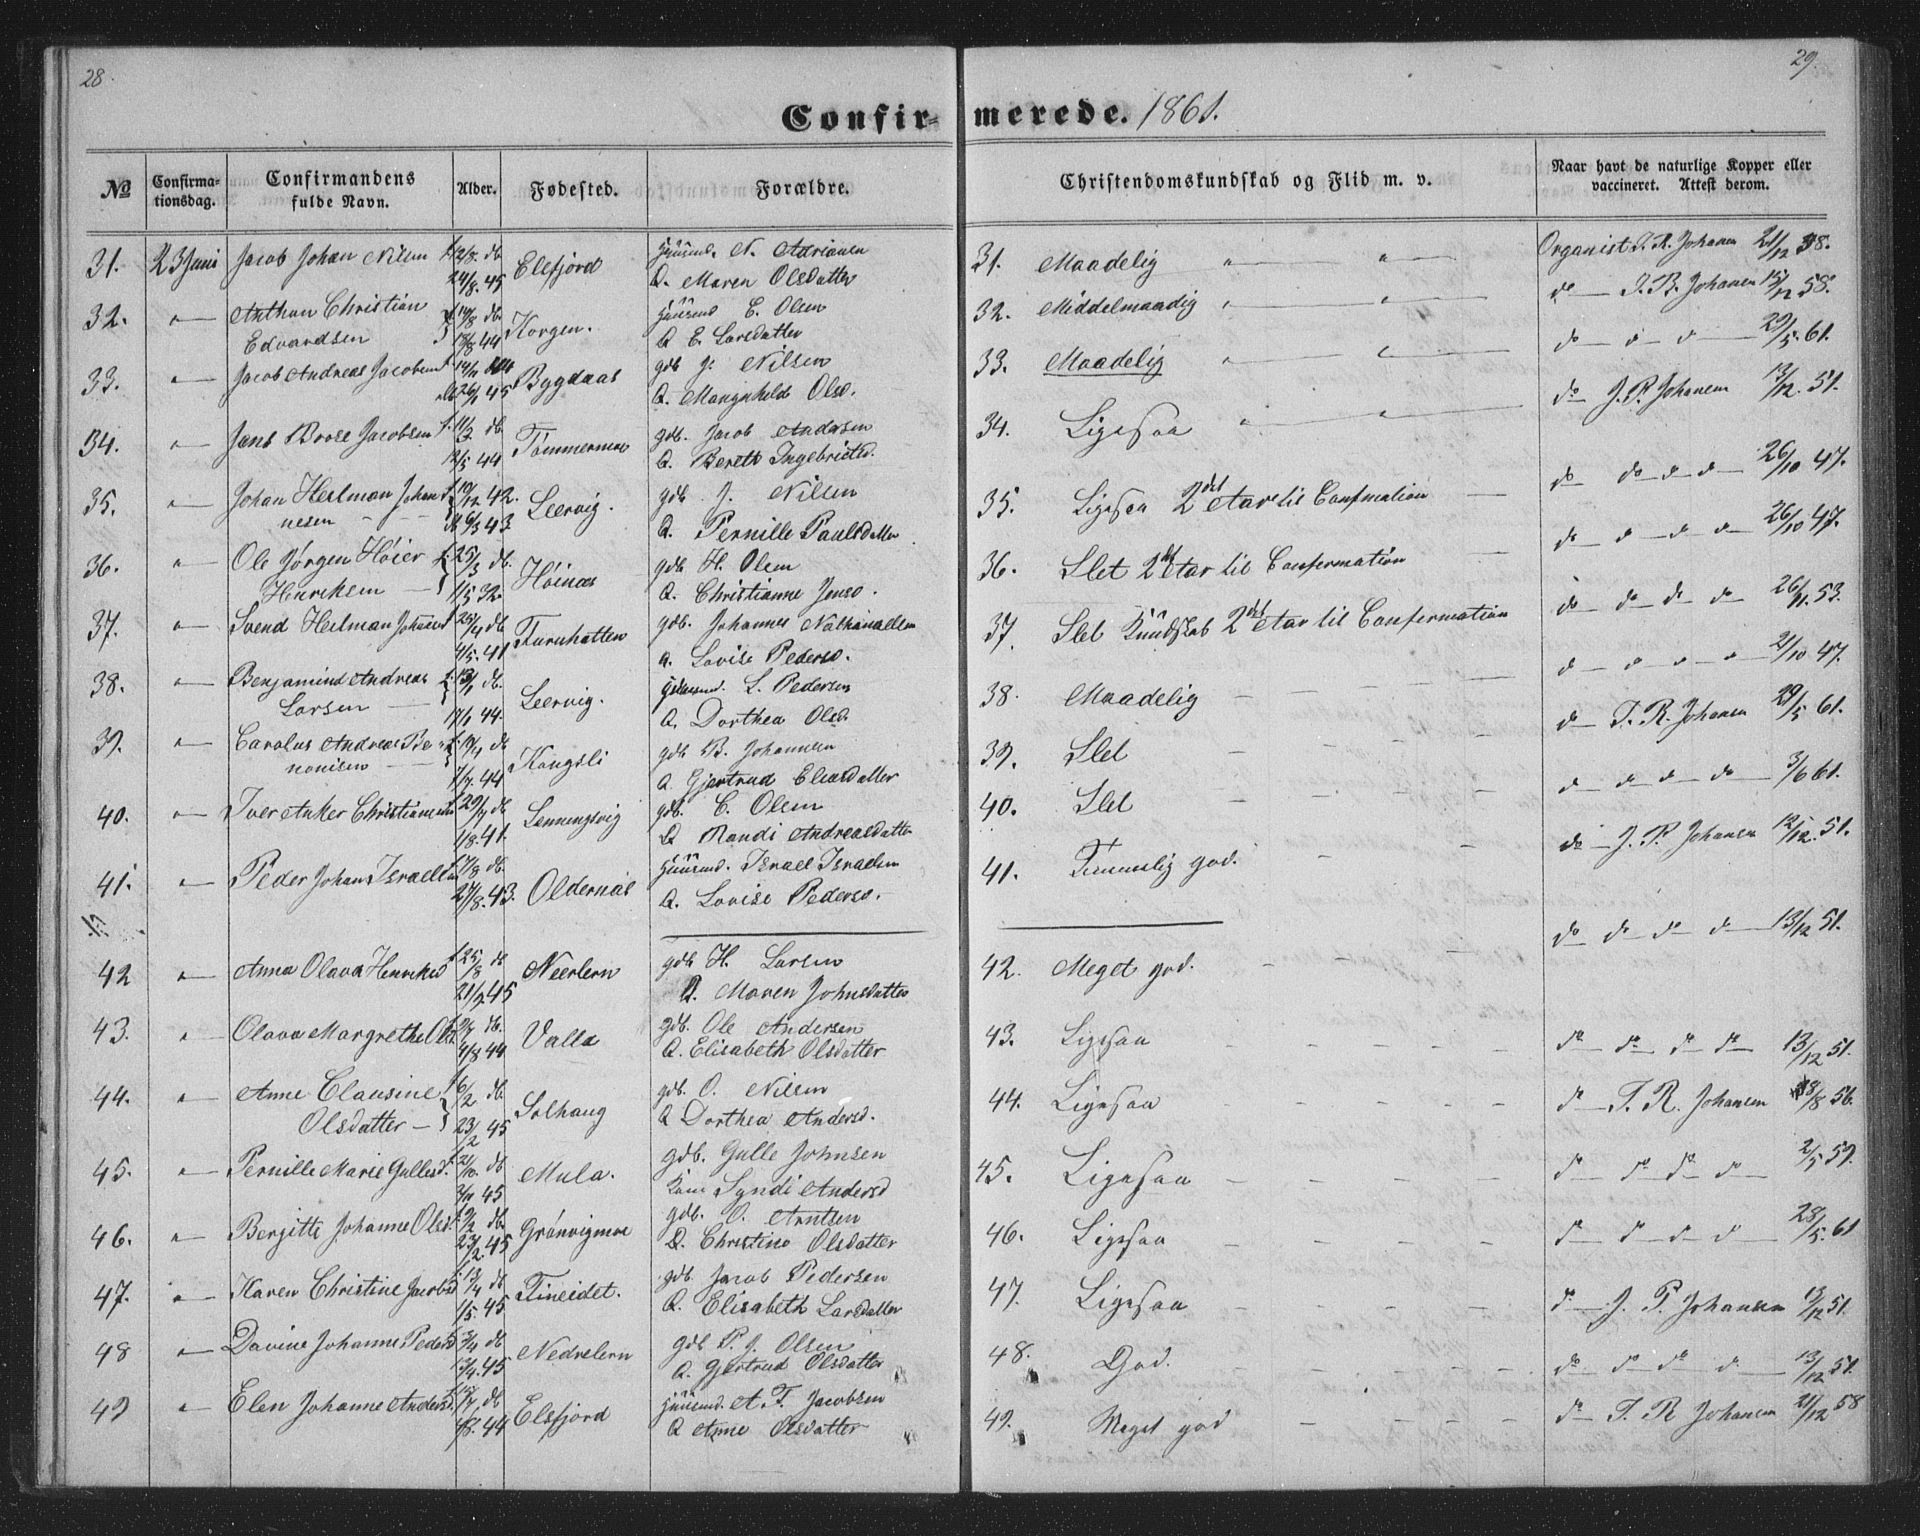 28.
29.
Confirmerede. 1861.
No
Confirmationsdag.
Confirmandens fulde Navn.
Alder.
Fødested.
Forældre.
Christendomskundskab og Flid m. v.
Naar havt de naturlige Kopper eller vaccineret. Attest derom.
31. 23 Juni Jacob Johan Nilsen db Elsfjord Huusmd. N. Adriansen
24/8. 45 Q. Maren Olsdatter
32. " Anthon Christian db Korgen. Huusmd E. Olsen
Edvardsen 18/8 44 Q E. Larsdatter
33. " Jacob Andreas Jacobsen Bygdaas gdb J. Nilsen
26/1 45 Q. Olsd.
34. " Jens Jacobsen db Tømmermoe gdb. Jacob Andersen
12/5 44 Q. Bereth Ingebrigtsd.
35. " Johan Herlman Johan f. 19/12 42. Leervig. gdb J. Nilsen
nesen db 6/3 43 Q. Pernille Paulsdatter
36. " Ole Jørgen Høier f. 25/3 db. Høinæs gdb H. Olsen
Henriksen 1/5 32. Q. Christianne Jensd.
37. " Svend Herlman Johans f. 25/4 db Turnhatten gdb. Johannes Nathanaelsen
4/5. 41 Q. Lovise Pedersd.
38. " Benjamin Andreas f. 13/1 db. Leervig. Huusmd. L. Pedersen
Larsen 17/1 44. Q. Dorthea Olsd.
39. " Carolus Andreas Be- db Kongsli gdb B. Johannsen
nonisen 1/7. 44 Q. Gjertrud Eliasdatter
40. " Iver Anker Christiansen f. 29/7 db gdb. C. Olsen
1/8. 41. Q Randi Andreasdatter
41. " Peder Johan Israelsen db. Oldernæs Huusmd. Israel Israelsen
27/8. 43. Q. Lovise Pedersd.
42 " Anna Olava Henriksd f. 25/8 db Neerlern gdb H. Larsen
21/9 45 Q. Maren Johnsdatter
43. " Olava Margrethe Olsd. db. Valla gdb. Ole Andersen
4/8 44 Q. Elisabeth Olsdatter
44. " Anne Clausine f. 6/2 db. Solhaug gdb. O. Nilsen
Olsdatter 23/2 45 Q Dorthea Andersd.
45. " Pernille Marie Gullesd. f. 21/10. db Mula. gdb. Gulle Johnsen
45 Kone Syndi Andersd
46. " Berjitte Johanne Olsd. db. Grønvigmoe gdb. O. Arntsen
23/2. 45 Q. Christine Olsdatter
47. " Karen Christine Jacobsd f. 13/4 db Fineidet. gdb Jacob Pedersen
1/5. 45 Q. Elisabeth Larsdatter
48 " Davine Johanne Pedersd db Nedrelern gdb P. J. Olsen
13/4. 45 Q. Gjertrud Olsdatter
49 " Elen Johanne Andersd. db Elsfjord Huusmd A. T. Jacobsen
44 Q Anne Olsdatter
31. Maadelig " " Organist T. R. Johansen 21/12 58.
32. Middelmaadig " " do T. R. Johansen 15/12 58.
33. Maadelig " " do " " 29/5. 61.
34. Ligesaa " " do J. P. Johansen 13/12. 51.
35. Ligesaa 2det Aar til Confirmation do do do do 26/10 47.
36. Slet 2det Aar til Confirmation do do do do 26/10 47.
37. Slet Kundskab 2det Aar til Confirmation do do do do 26/11. 53.
38. Maadelig do do do do 21/10 47.
39. Slet do T. R. Johansen 29/5 61.
40. Slet do do do do 3/6 61.
41. Temmelig god. do J. P. Johansen 12/12. 51.
42. Meget god. do do do do 13/12 51.
43. Ligesaa do do do do 13/12 51.
44. Ligesaa do T. R. Johansen 56.
45. Ligesaa do do do do 2/5 59.
46. Ligesaa do do do do 28/5. 61
47. Ligesaa do J. P. Johansen 13/12 51.
48. God. do do do do 13/12 51.
49. Meget god do T. R. Johansen 21/12 58